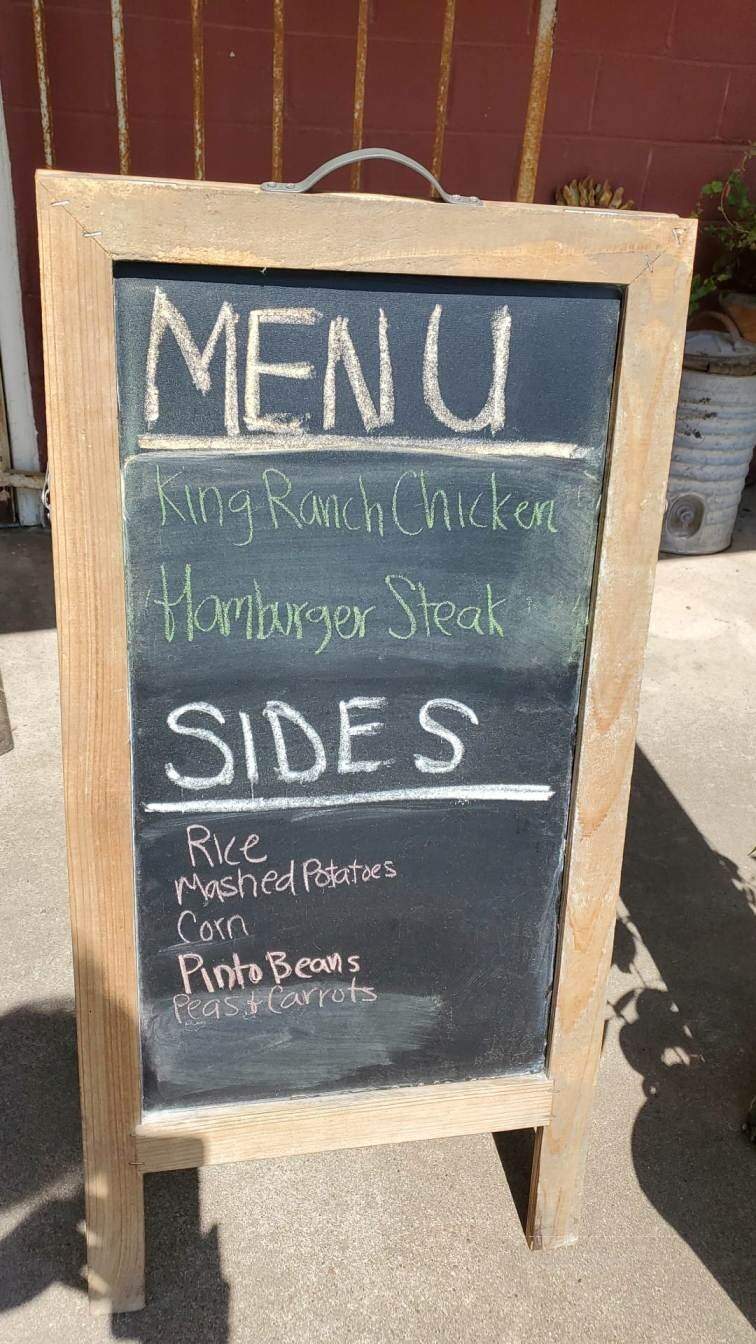 MENU
King Ranch Chicken
Hamburger Steak
SIDES
Rice
Mashed Potatoes
Corn
Pinto Beans
Peas & Carrots